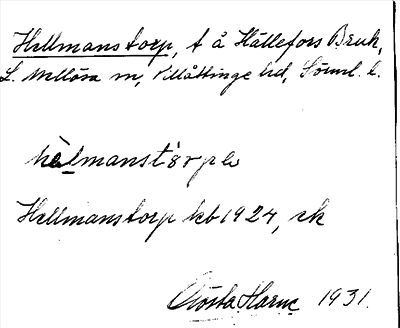 Hellmanstorp, t å Hällefors Bruk,
L. Mellösa sn, Villåttinge hd, Söderml. l.
hèlmanstårp
Hellmanstorp kb 1924, ek
Gösta Harne 1931.